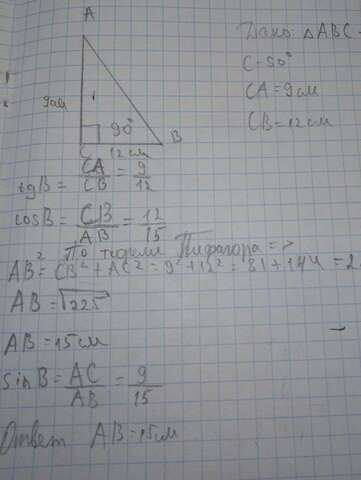 A
Дано: △ABC
C - 90°
CA = 9 см
CB = 12 см
9 см
90°
C 12 см B
tgB = CA/CB = 9/12
cosB = CB/AB = 12/15
По теореме Пифагора =>
AB² = CB² + AC² = 9² + 12² = 81 + 144 = 2
AB = √225
AB = 15 см
sinB = AC/AB = 9/15
Ответ AB = 15 см